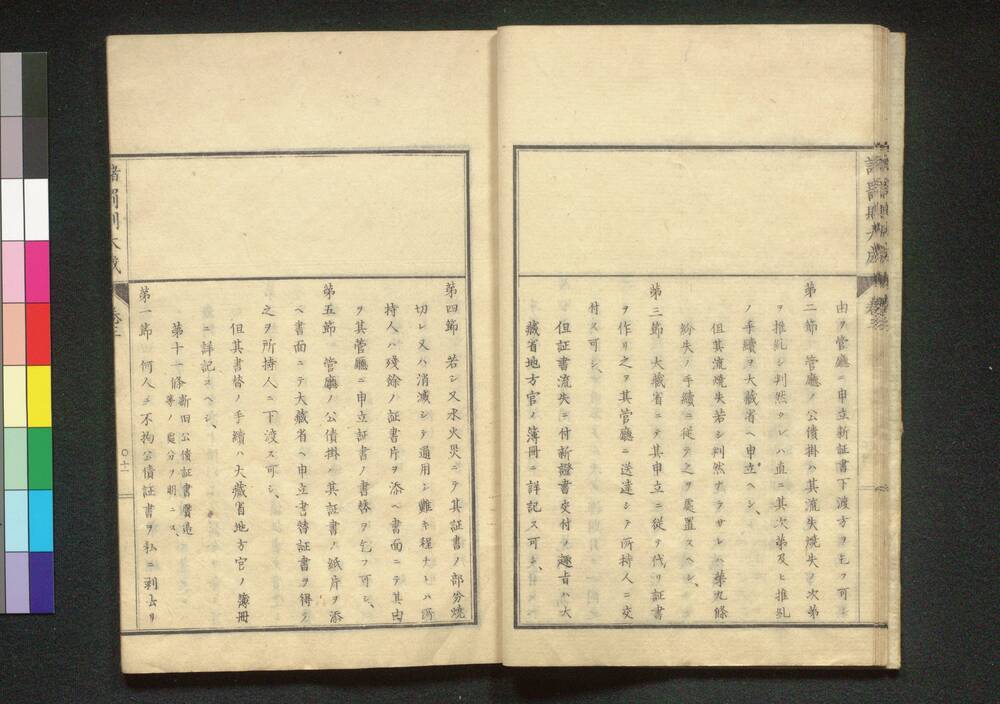 由ヲ管廳ニ申立新証書下渡方ヲ乞フ可シ
第二節 管廳ノ公債掛ハ其流失燒失ノ次第
ヲ推糺シ判然タレハ直ニ其次第及ヒ推糺
ノ手續ヲ大藏省ヘ申立ヘシ、
但其流燒失若シ判然ナラサレハ第九條
紛失ノ手續ニ従テ之ヲ處置スヘシ、
第三節 大藏省ニテ其申立ニ従ヲ代リ証書
ヲ作リ之ヲ其管廳ニ送達シテ所持人ニ交
付ス可シ、
但証書流失ニ付新證書交付ノ趣旨ハ大
藏省地方官ノ簿冊ニ詳記ス可シ、
第四節 若シ又水火災ニテ其証書ノ部分燒
切レ又ハ消滅シテ通用シ難キ程ナレハ所
持人ハ殘餘ノ証書片ヲ添ヘ書面ニテ其由
ヲ其管廳ニ申立証書ノ書替ヲ乞フ可シ、
第五節 管廳ノ公債掛ハ其証書ノ紙片ヲ添
ヘ書面ニテ大藏省ヘ申立書替証書ヲ得テ
之ヲ所持人ニ下渡ス可シ、
但其書替ノ手續ハ大藏省地方官ノ簿冊
ニ詳記スヘシ、
第十一條 新旧公債証書贋造
等ノ處分ヲ明ニス、
第一節 何人ニ不拘公債証書ヲ私ニ剥去リ